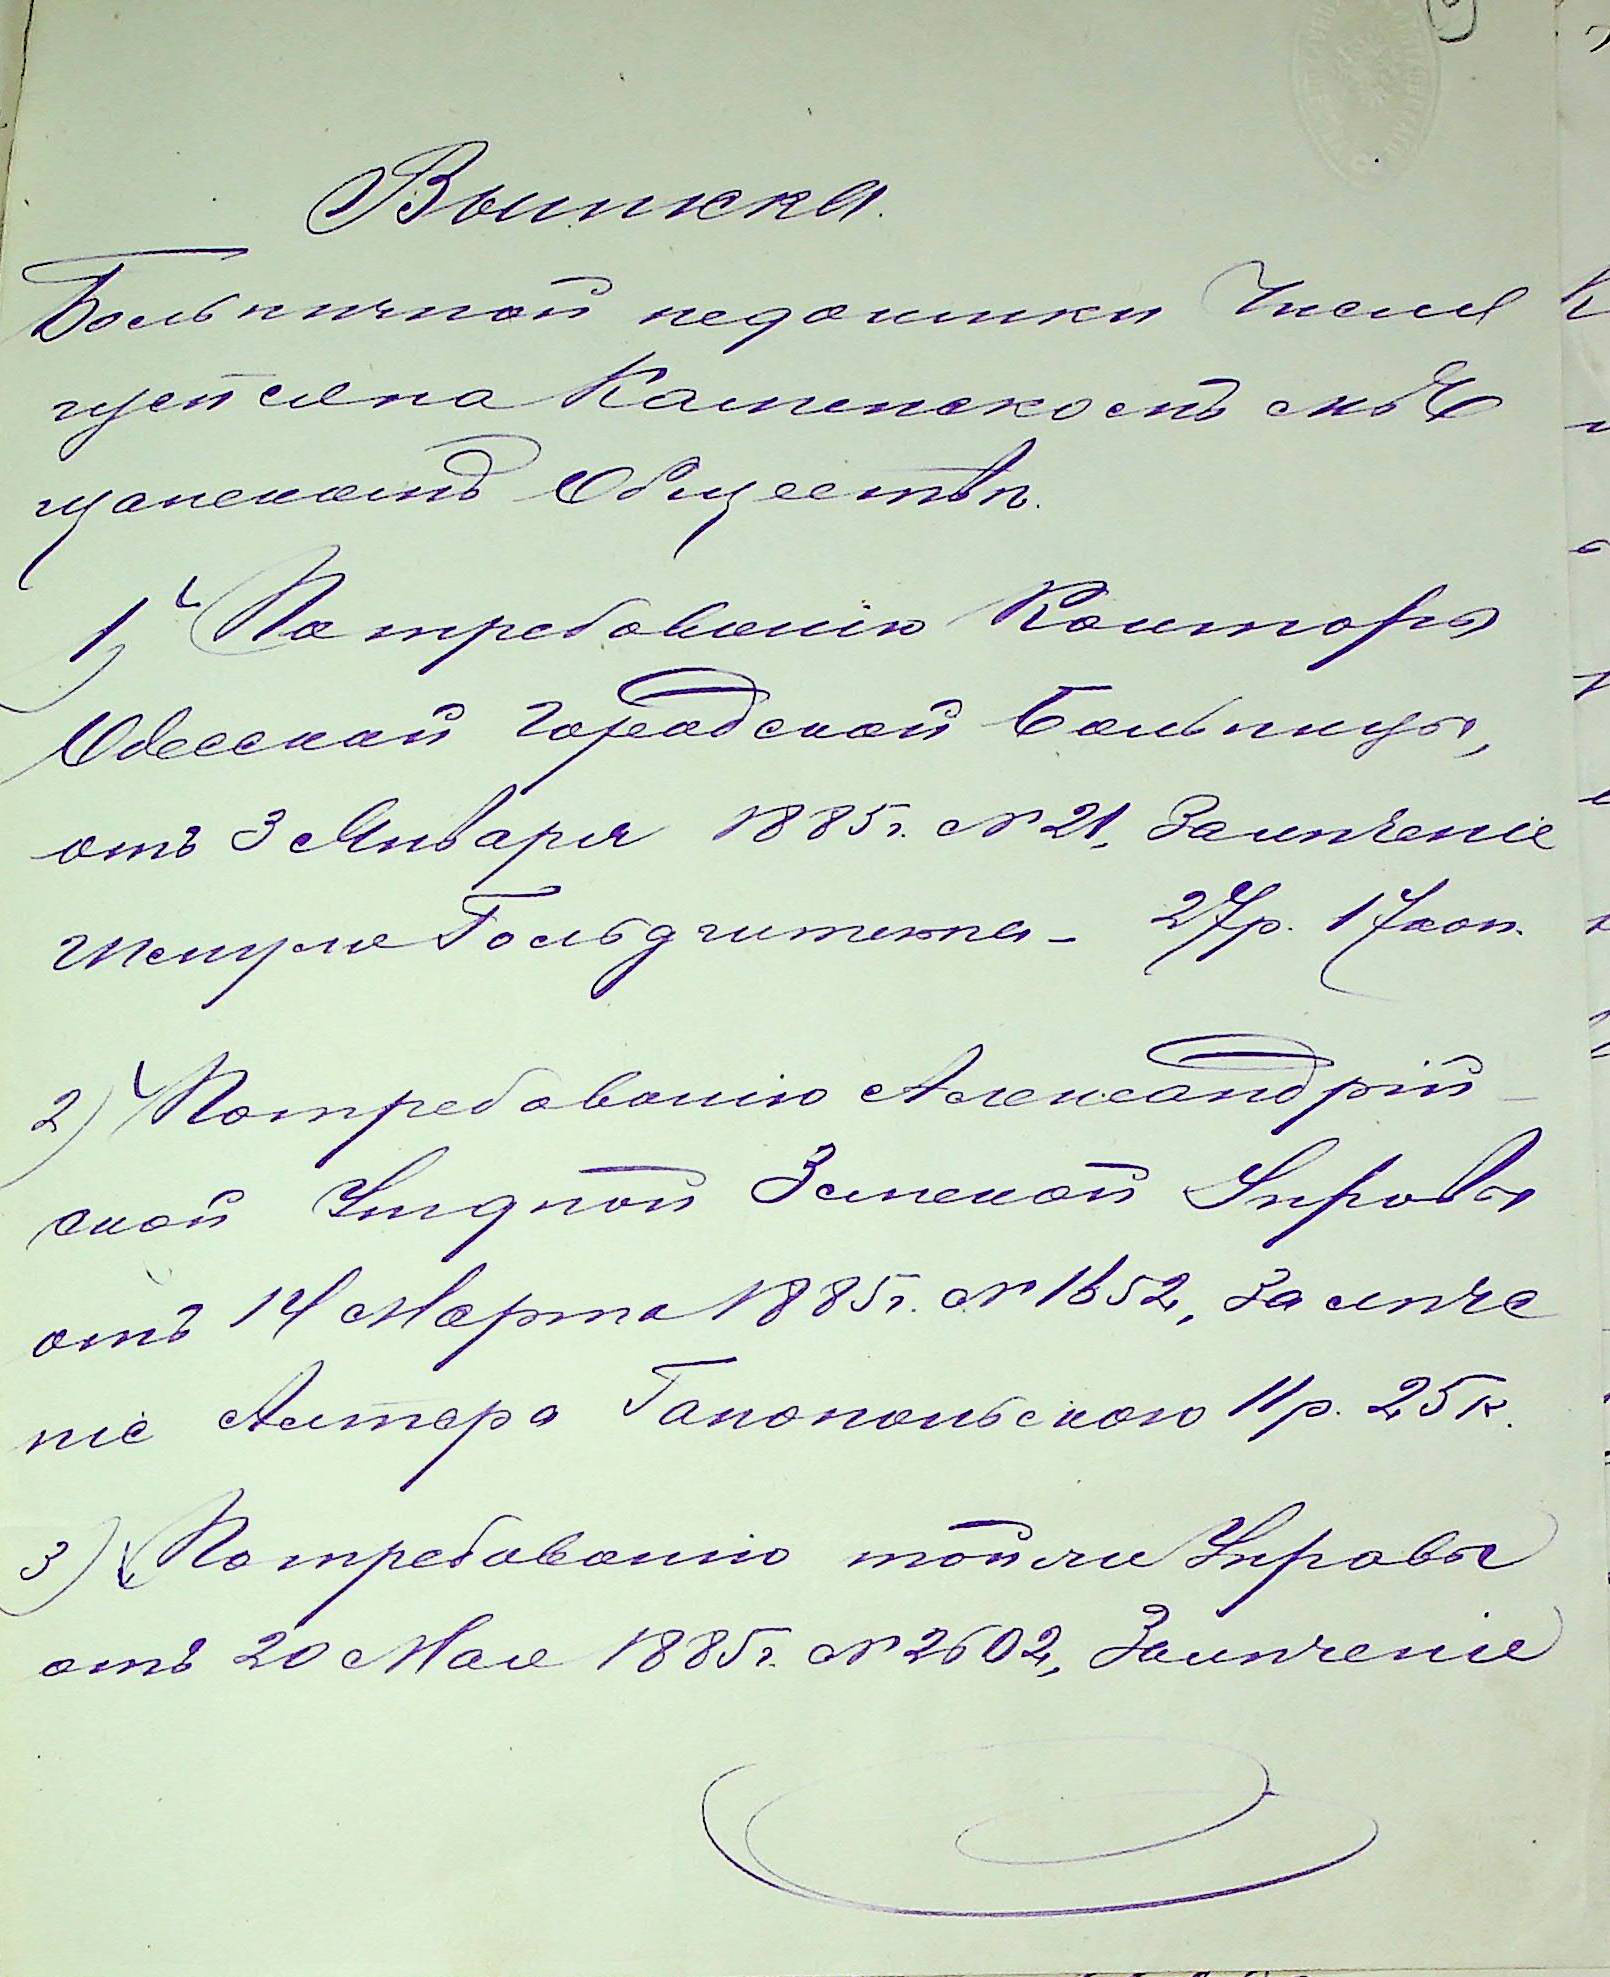 Выписка.
Больничной недоимки числя
щейся на Каменскомъ мѣ
щанскомъ Обществѣ.
1) По требованію Конторы
Одесской городской Больницы,
отъ 3 Января 1885 г. № 21, За лѣченіе
Гольдштейна - 27 р. 17 коп.
2) По требованію Александрій-
ской Уѣздной Земской Управы
отъ 14 Марта 1885 г. № 1652, За лѣче
ніе Алтера Ганопольского 11 р. 25 к.
3) По требованію той же Управы
отъ 20 Мая 1885 г. № 2602, За лѣченіе